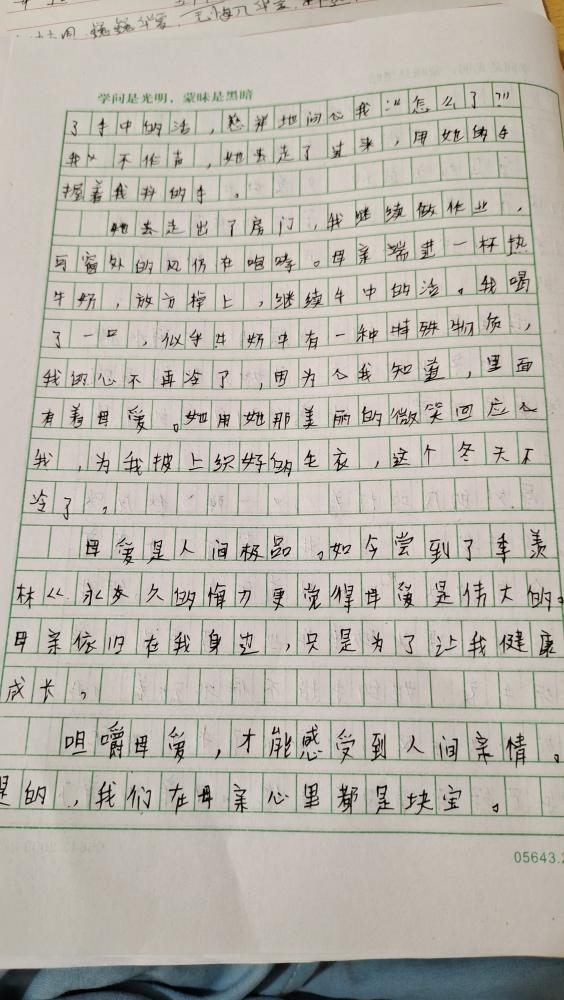 学问是光明，蒙昧是黑暗
了手中的活，慈祥地问心我："怎么了?"
我 不作声，她去走了过来，用她的手
握着我 的手。
她去走出了房门，我继续做作业，
窗外的风仿在咆哮。母亲端进一杯热
牛奶，放方掉上，继续手中的活。我喝
了一口，似乎牛奶中有一种特殊物质，
我的心不再冷了，因为心我知道，里面
有着母爱。她用她那美丽的微笑回应心
我，为我披上织好的毛衣，这个冬天不
冷了。
母爱是人间极品。如今尝到了季羡
林《永久的悔》更觉得母爱是伟大的。
母亲依旧在我身边，只是为了让我健康
成长。
咀嚼母爱，才能感受到人间亲情。
是的，我们在母亲心里都是块宝。
05643.2